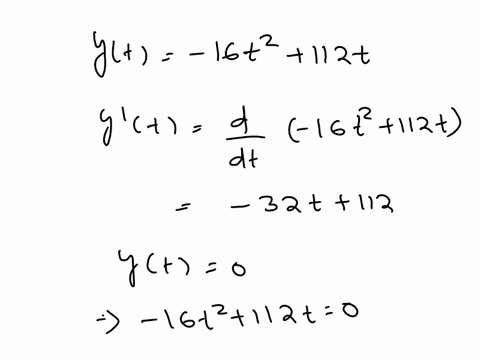 y(t) = -16t² + 112t
y'(t) = d/dt (-16t² + 112t)
= -32t + 112
y(t) = 0
⇒ -16t² + 112t = 0